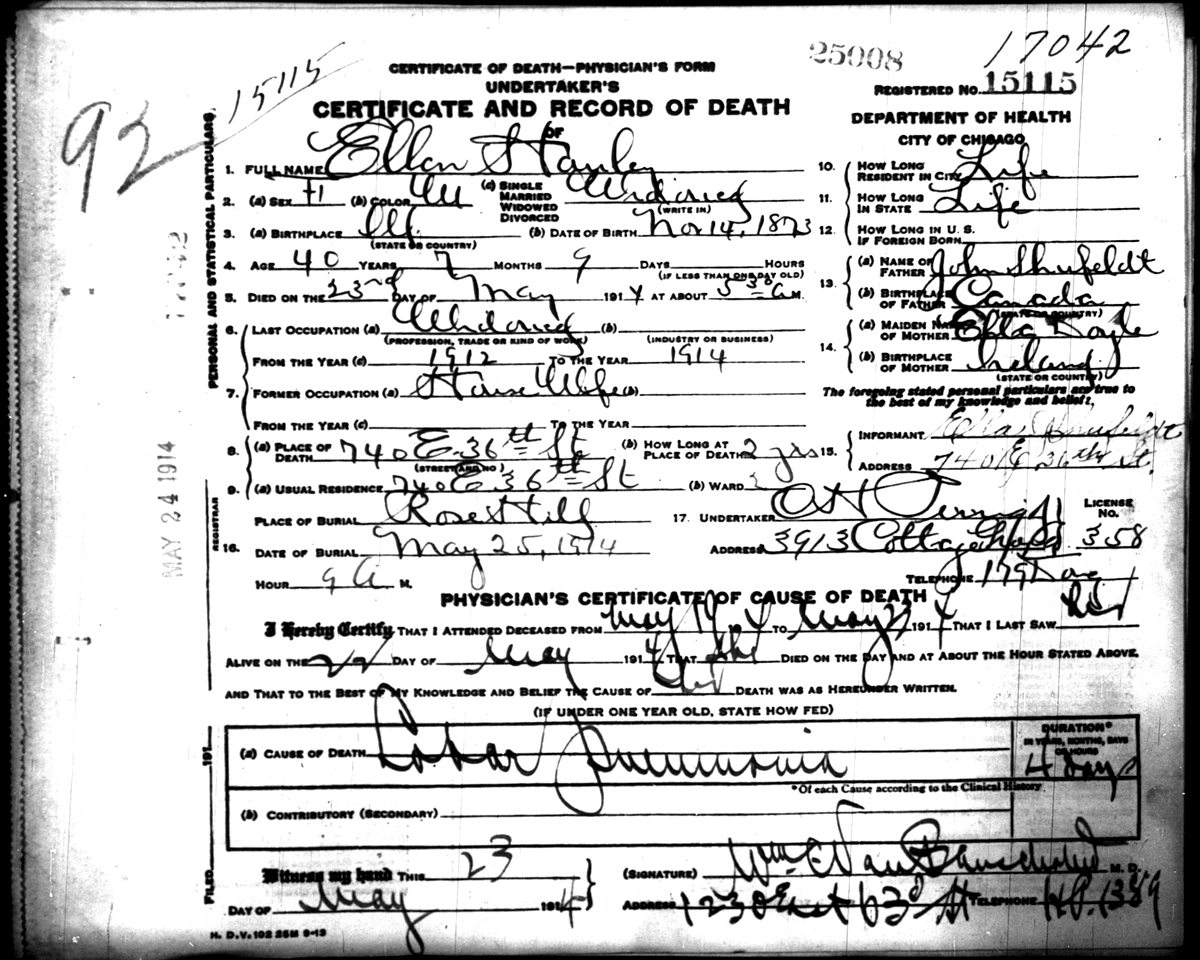 25008
17042
92
15115
CERTIFICATE OF DEATH—PHYSICIAN'S FORM
UNDERTAKER'S
CERTIFICATE AND RECORD OF DEATH
OF
REGISTERED No. 15115
DEPARTMENT OF HEALTH
CITY OF CHICAGO
PERSONAL AND STATISTICAL PARTICULARS
1. FULL NAME Ellen Stanley
2. (a) SEX (b) COLOR W (c) SINGLE MARRIED WIDOWED DIVORCED Widowed
(WRITE IN)
3. (a) BIRTHPLACE Ill. (b) DATE OF BIRTH Nov 14, 1873
(STATE OR COUNTRY)
4. AGE 40 YEARS 7 MONTHS 9 DAYS HOURS
(IF LESS THAN ONE DAY OLD)
5. DIED ON THE 23rd DAY OF May 1914 AT ABOUT 5 30 A M.
6. LAST OCCUPATION (a) Widowed (b)
(PROFESSION, TRADE OR KIND OF WORK) (INDUSTRY OR BUSINESS)
FROM THE YEAR (c) 1912 TO THE YEAR 1914
7. FORMER OCCUPATION (a) House Wife (b)
FROM THE YEAR (c) TO THE YEAR
8. (a) PLACE OF DEATH 740 E 36th St (b) HOW LONG AT PLACE OF DEATH 2 yrs
(STREET AND NO)
9. (a) USUAL RESIDENCE 740 E 36th St (b) WARD
10. HOW LONG RESIDENT IN CITY Life
11. HOW LONG IN STATE Life
12. HOW LONG IN U. S. IF FOREIGN BORN
13. (a) NAME OF FATHER John Shufeldt
(b) BIRTHPLACE OF FATHER Canada
(STATE OR COUNTRY)
14. (a) MAIDEN NAME OF MOTHER Ella Doyle
(b) BIRTHPLACE OF MOTHER Ireland
(STATE OR COUNTRY)
The foregoing stated personal particulars are true to
the best of my knowledge and belief.
15. INFORMANT Ella Shufeldt
ADDRESS 740 E 36th St.
REGISTRAR
MAY 24 1914
16. PLACE OF BURIAL Rose Hill
DATE OF BURIAL May 25, 1914
HOUR 9 A M.
17. UNDERTAKER LICENSE No. 358
ADDRESS 3913 Cottage
TELEPHONE
PHYSICIAN'S CERTIFICATE OF CAUSE OF DEATH
I Hereby Certify THAT I ATTENDED DECEASED FROM May 19 4 TO May 1914 THAT I LAST SAW her
ALIVE ON THE 22 DAY OF May 1914 THAT she DIED ON THE DAY AND AT ABOUT THE HOUR STATED ABOVE,
AND THAT TO THE BEST OF MY KNOWLEDGE AND BELIEF THE CAUSE OF her DEATH WAS AS HEREUNDER WRITTEN.
(IF UNDER ONE YEAR OLD, STATE HOW FED)
DURATION*
IN YEARS, MONTHS, DAYS OR HOURS
(a) CAUSE OF DEATH Lobar Pneumonia 4 Days
*Of each Cause according to the Clinical History
(b) CONTRIBUTORY (SECONDARY)
FILED 191
Witness my hand THIS 23
DAY OF May 1914
(SIGNATURE) Wm M. D.
ADDRESS 1230 East 63d St TELEPHONE H.P. 1389
H. D. V. 102 25M 6-13